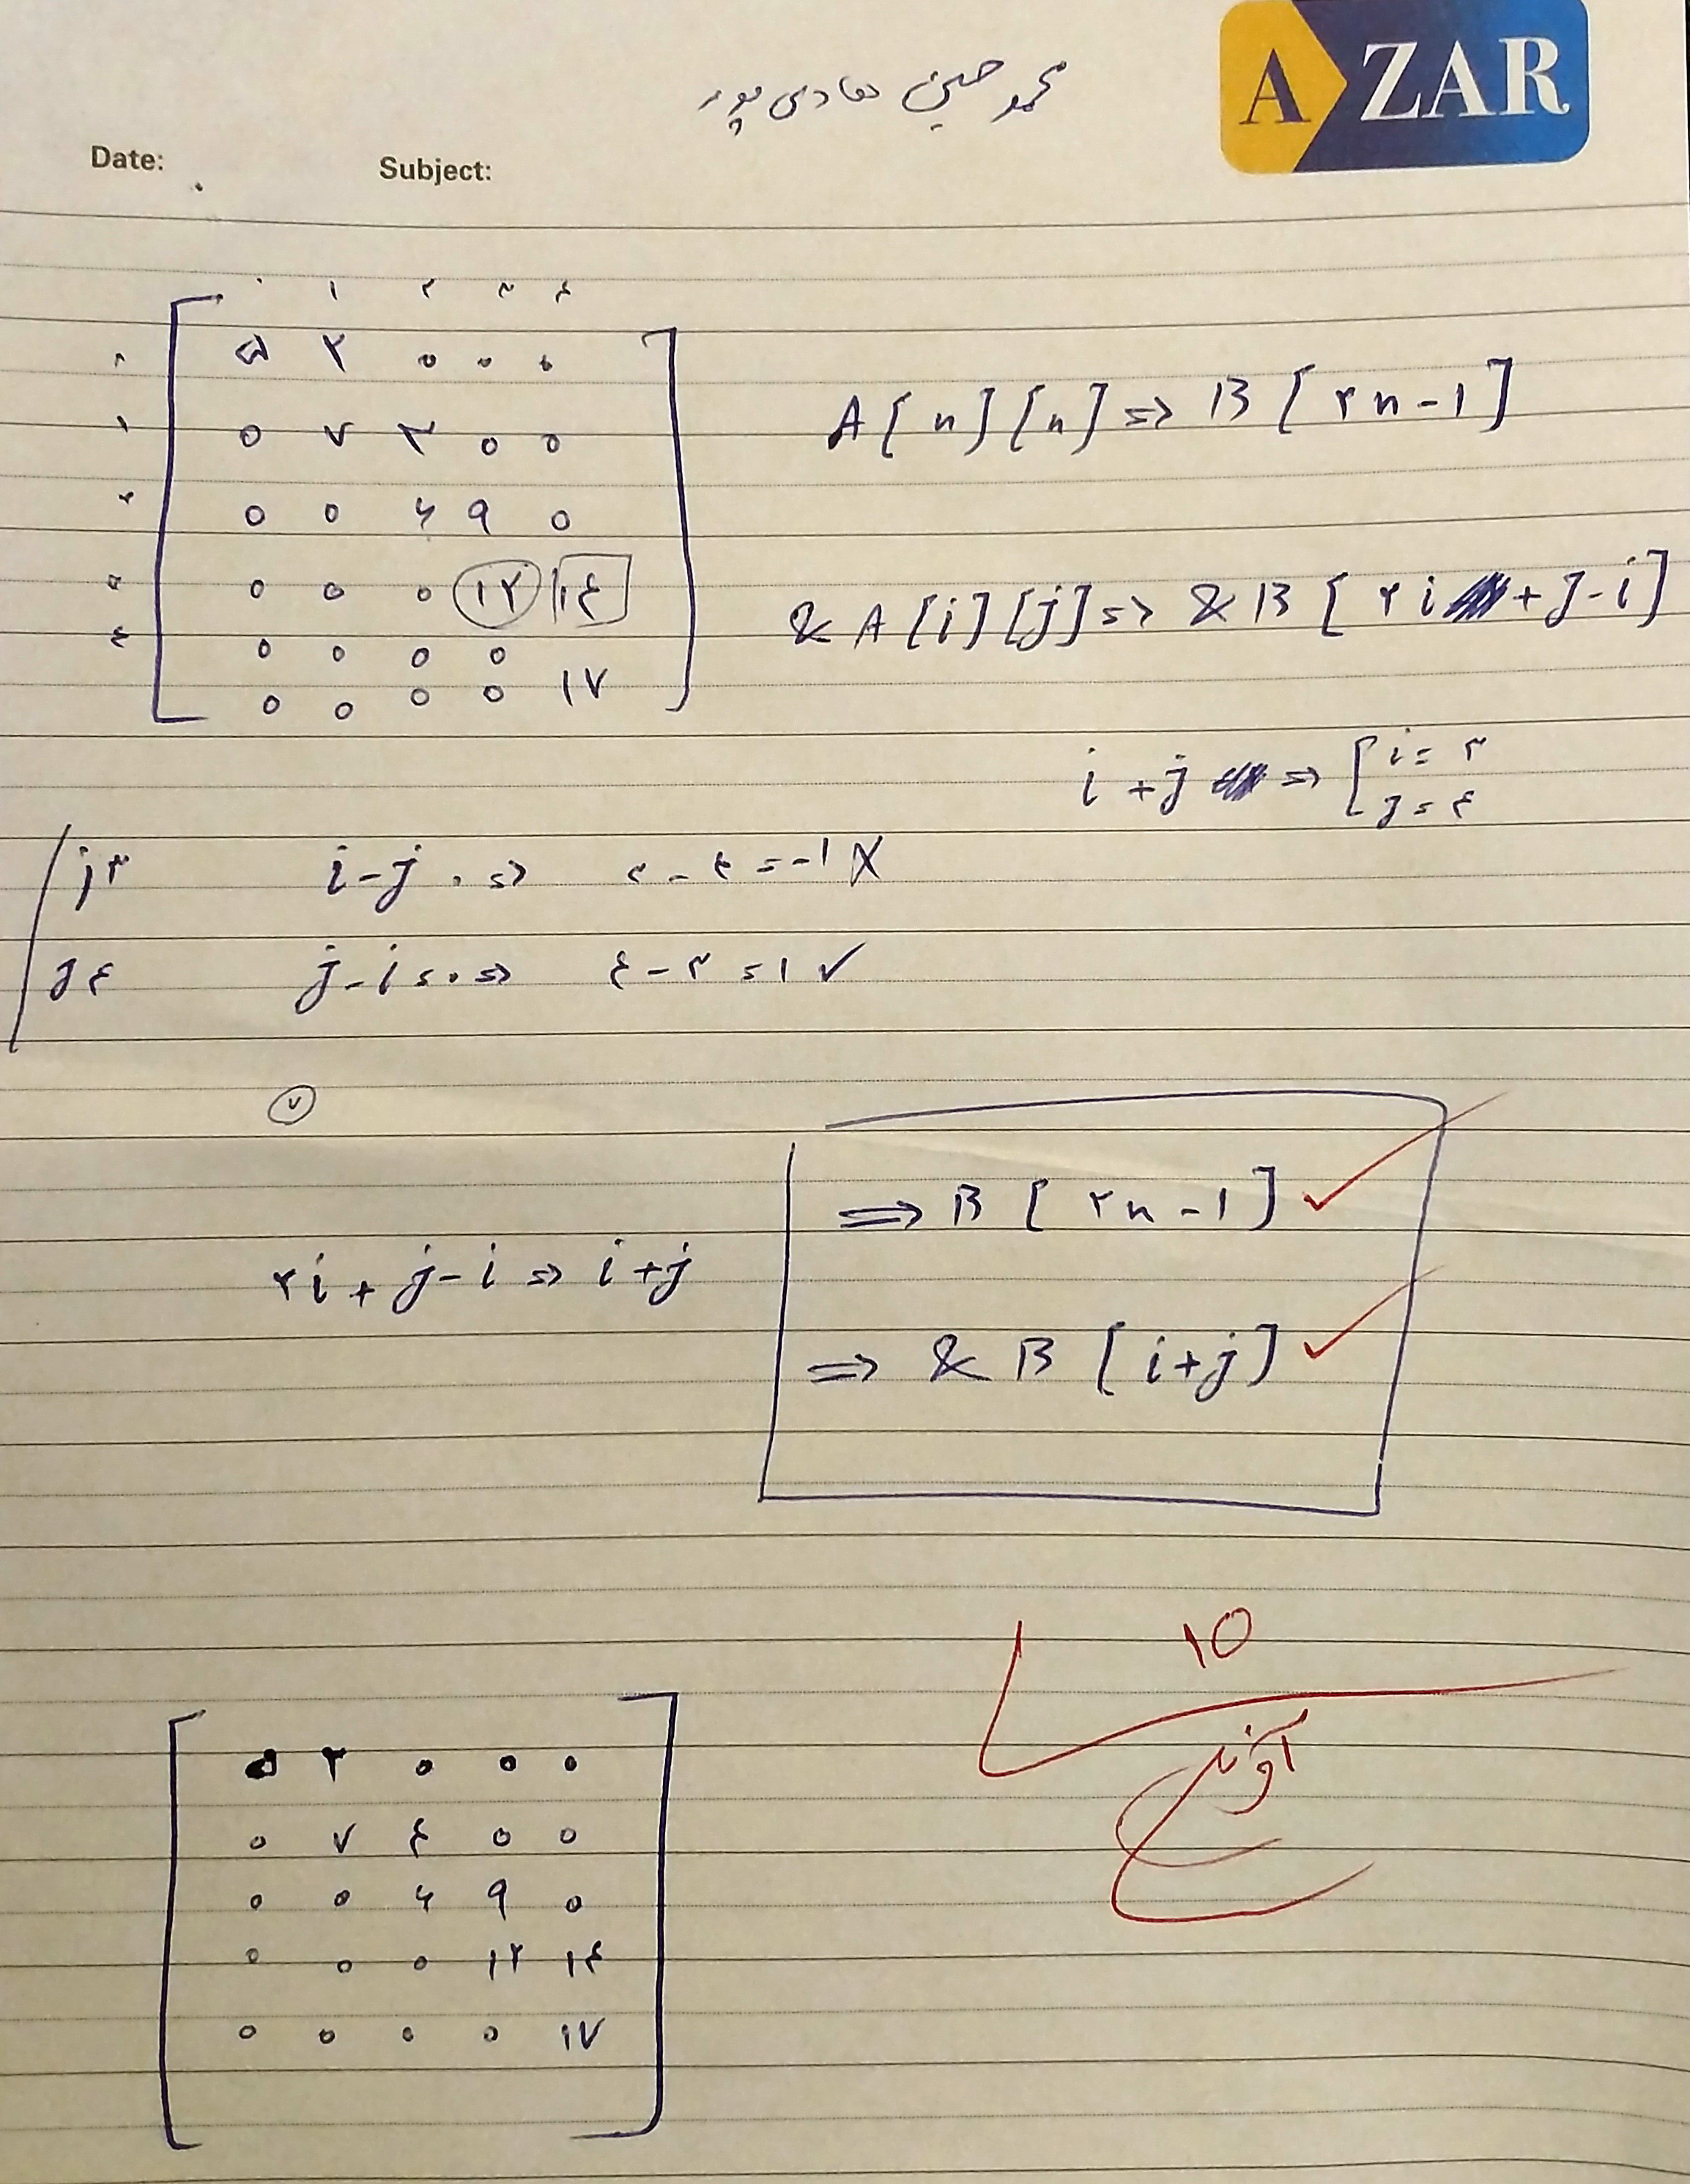 محمد حسین هادی پور
AZAR
Date: Subject:
۰ ۱ ۲ ۳ ۴
۰ ۵ ۲ ۰ ۰ ۰
۱ ۰ ۷ ۳ ۰ ۰
۲ ۰ ۰ ۶ ۹ ۰
۳ ۰ ۰ ۰ ۱۲ ۱۴
۴ ۰ ۰ ۰ ۰
۰ ۰ ۰ ۰ ۱۷
A[n][n] => B[۲n-۱]
&A[i][j] => &B[۲i+j-i]
i+j => [i=۳
j=۴
j۳ i-j => ۳-۴=-۱ X
j۴ j-i => ۴-۳=۱ ✓
۷
=> B[۲n-۱] ✓
۲i+j-i => i+j
=> &B[i+j] ✓
۱۵
۵ ۲ ۰ ۰ ۰
۰ ۷ ۴ ۰ ۰
۰ ۰ ۶ ۹ ۰
۰ ۰ ۰ ۱۲ ۱۴
۰ ۰ ۰ ۰ ۱۷